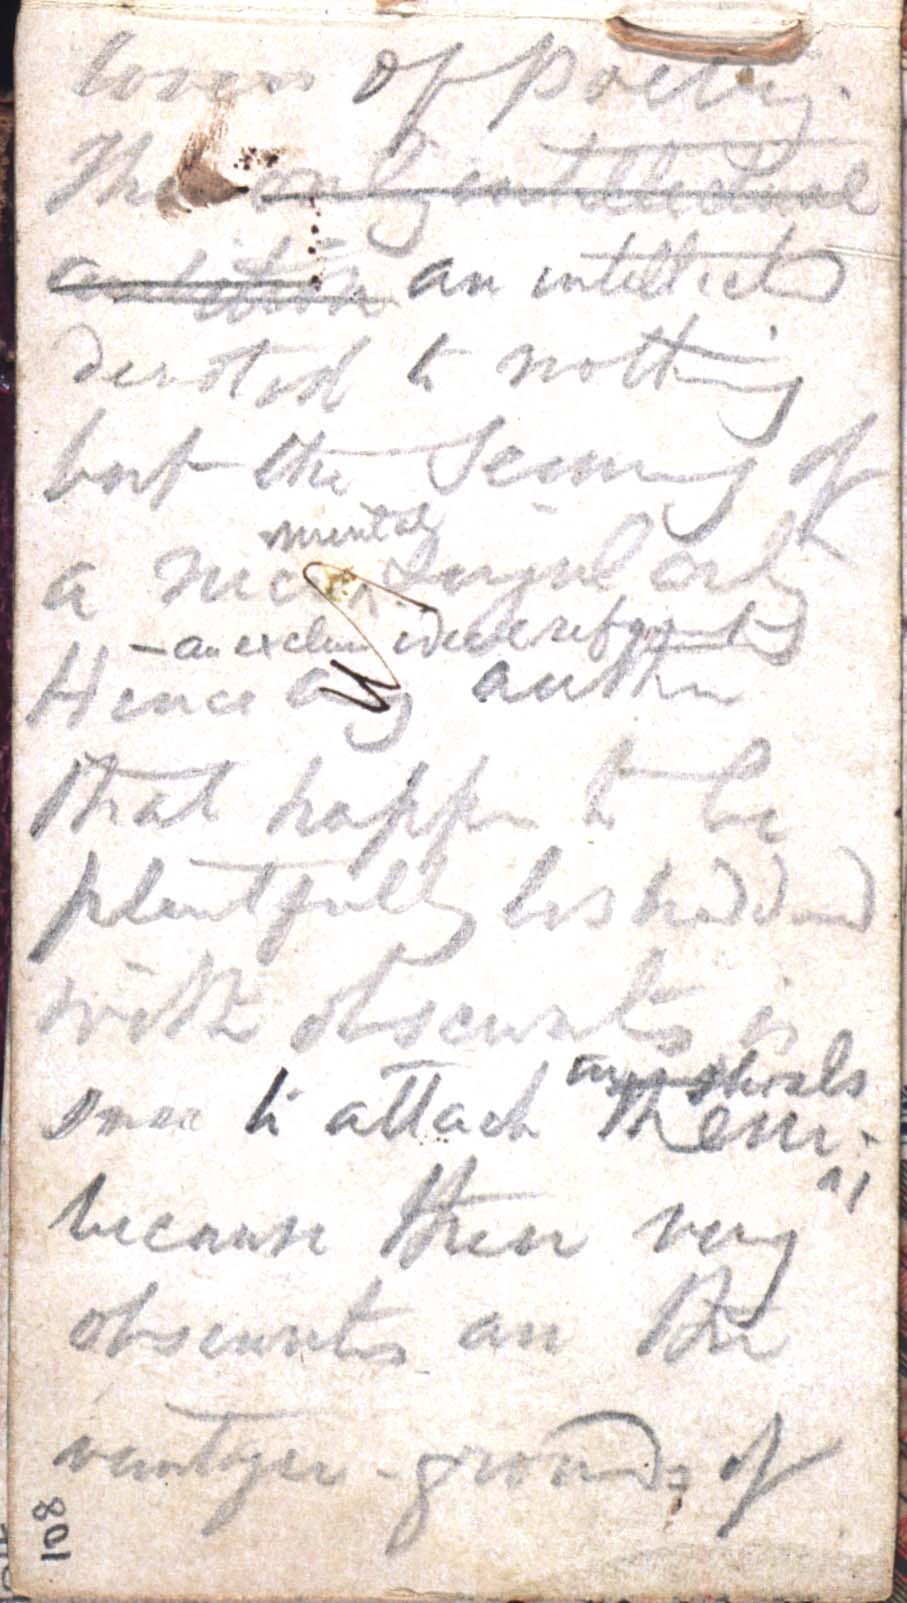 lovers of poetry.
The only intellectual
ambition an intellect
devoted to nothing
but the seeming of
mental
a nice singularity
— an exclusive refined
Hence any author
that happen to be
plentifully bestudded
with obscurities is
sure to attach
them.
because these very
obscurities are the
vantage-grounds of
108